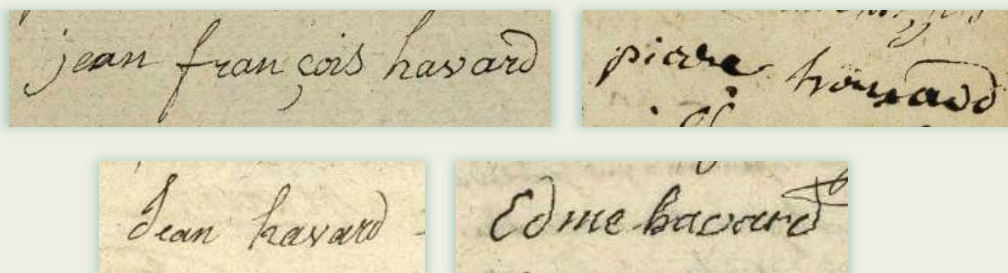 jean françois havard
pierre houvard
Jean havard
Edme havard